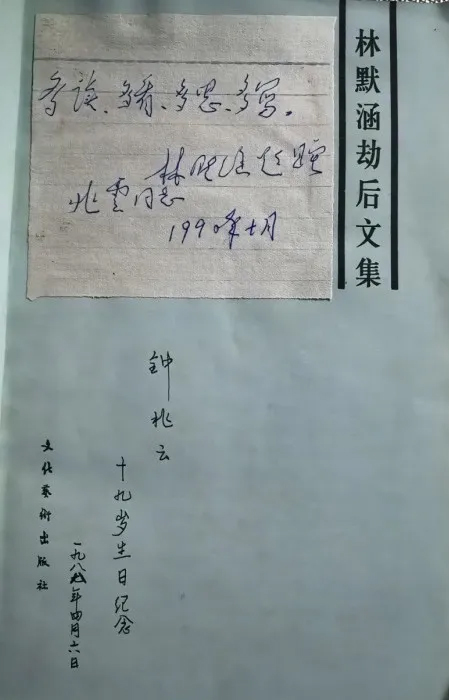 林默涵劫后文集
多读、多看、多思、多写。
林默涵题赠
兆云同志
1990年十月
钟兆云
十九岁生日纪念
文化艺術出版社
一九八七年四月六日